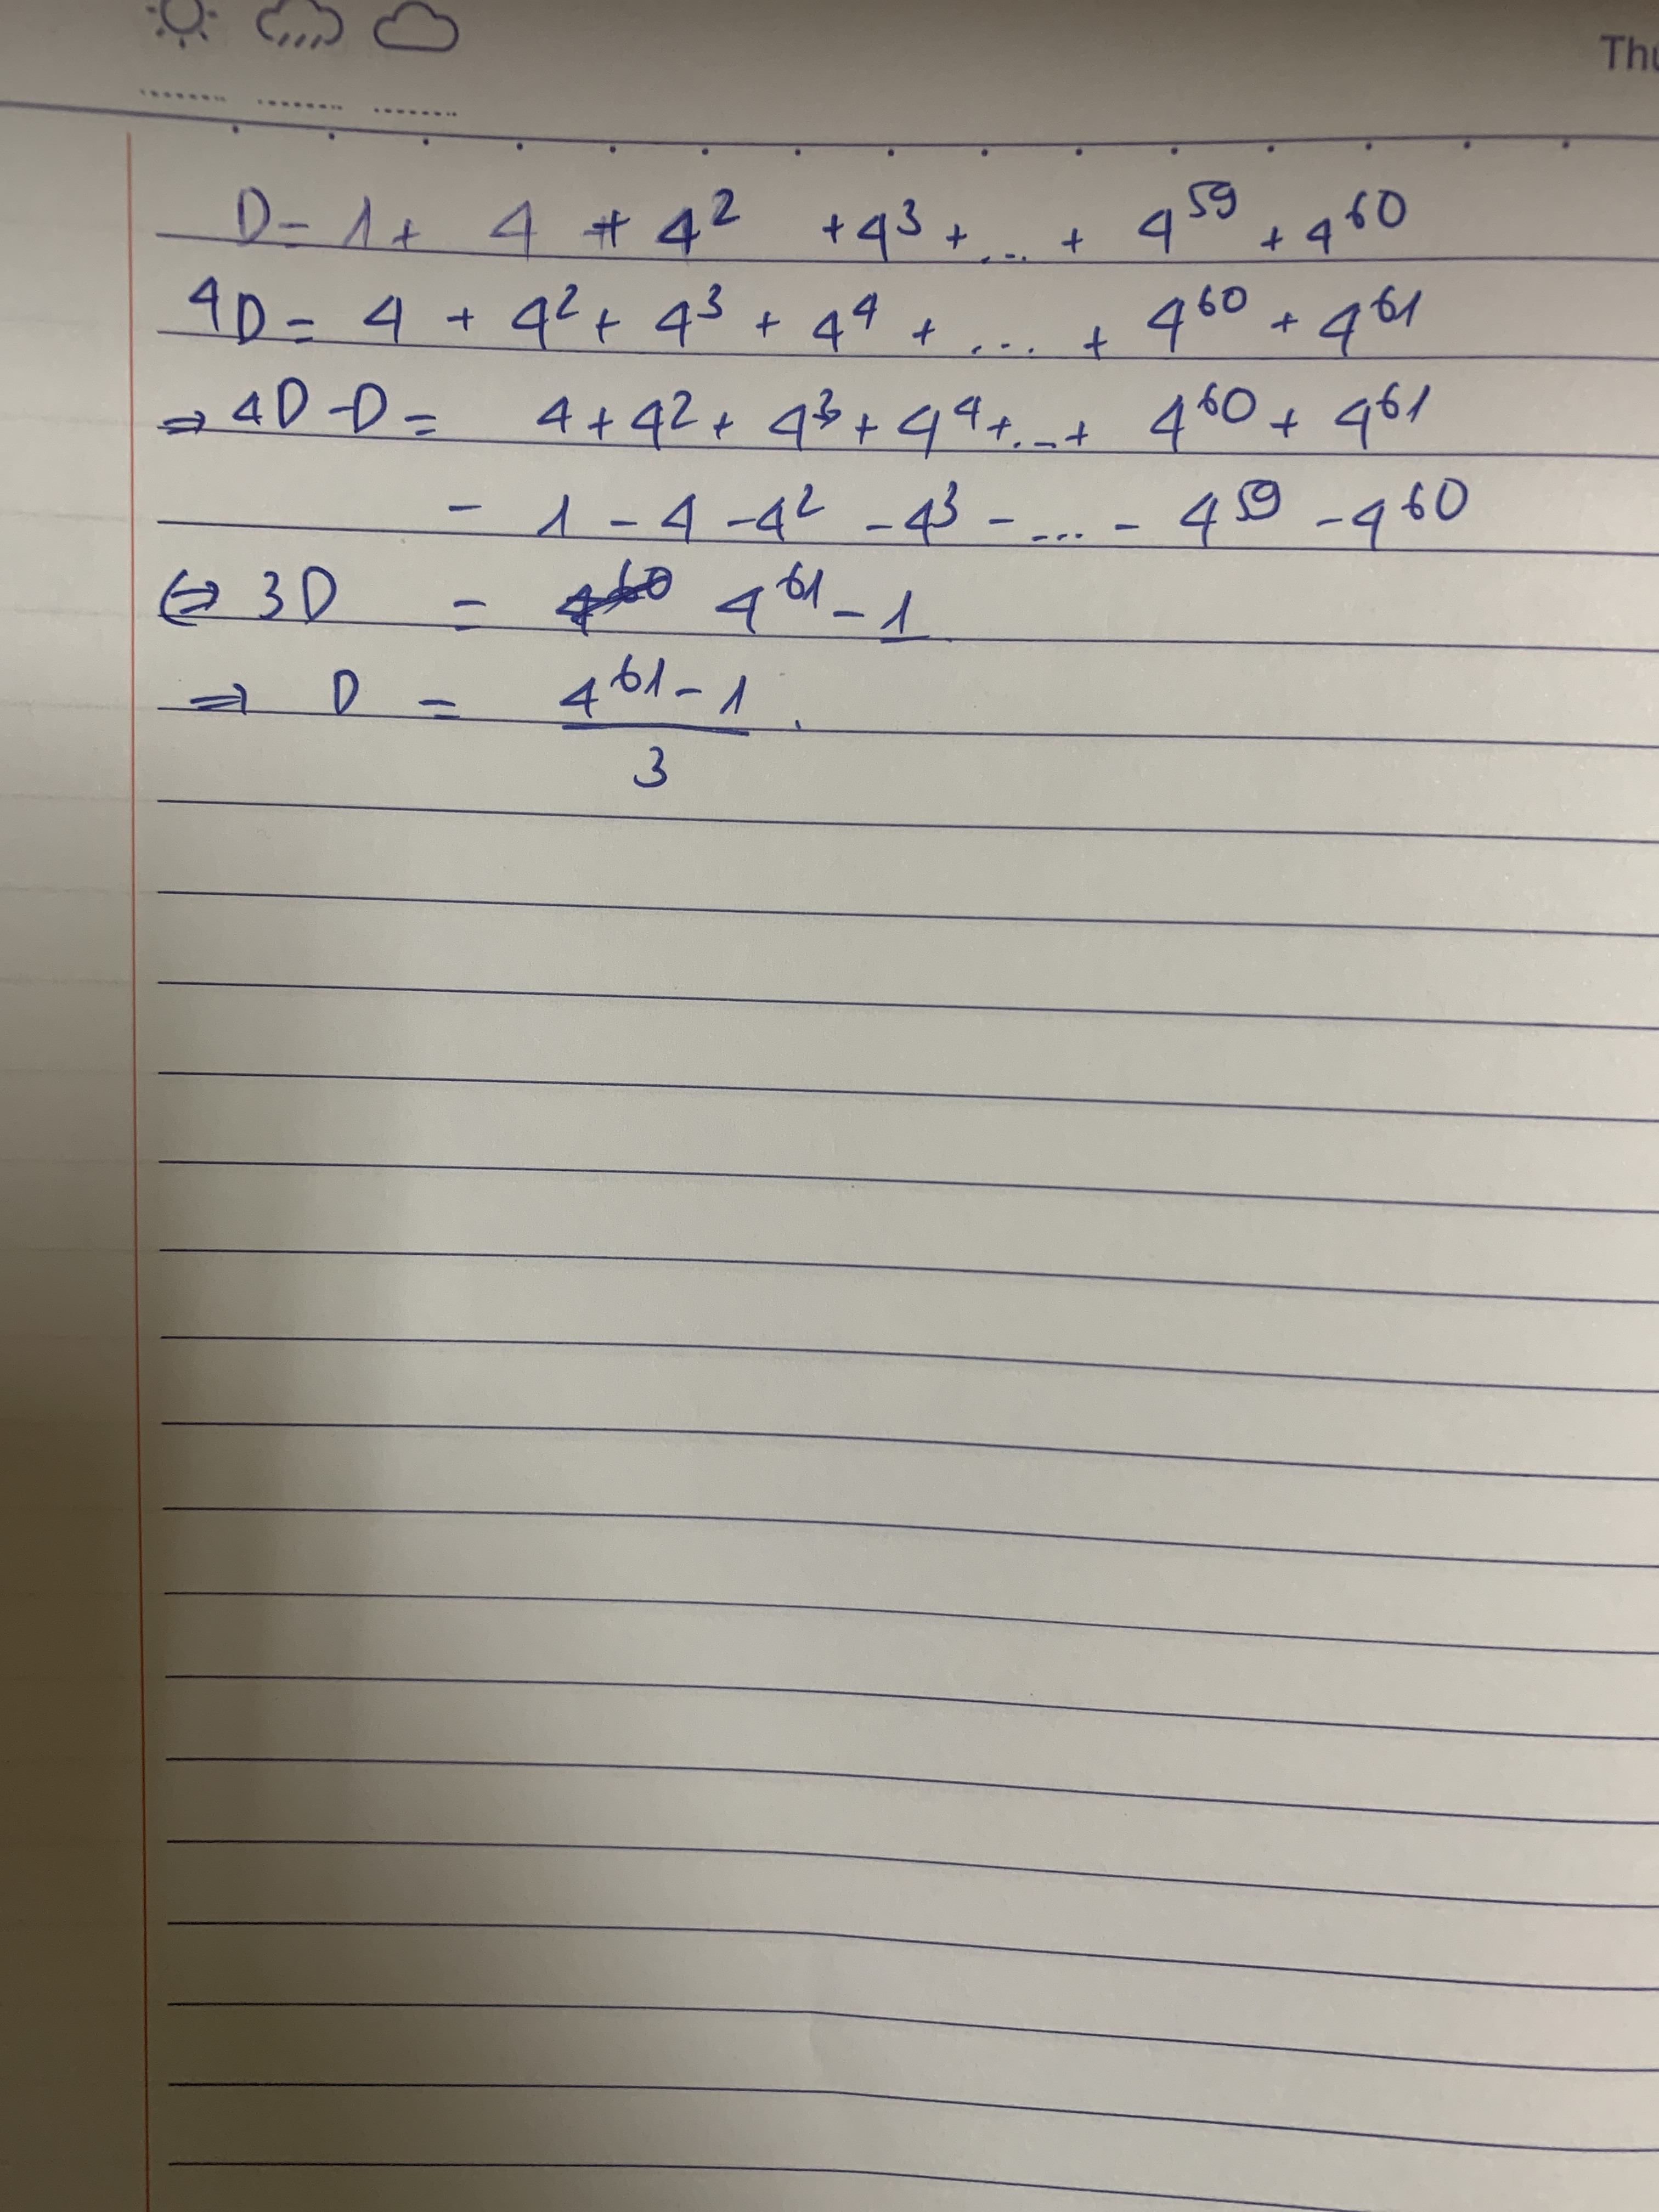 Thu
D = 1 + 4 + 4² + 4³ + ... + 4⁵⁹ + 4⁶⁰
4D = 4 + 4² + 4³ + 4⁴ + ... + 4⁶⁰ + 4⁶¹
⇒ 4D - D = 4 + 4² + 4³ + 4⁴ + ... + 4⁶⁰ + 4⁶¹
- 1 - 4 - 4² - 4³ - ... - 4⁵⁹ - 4⁶⁰
⇔ 3D = 4⁶¹ - 1
⇒ D = 4⁶¹ - 1
3